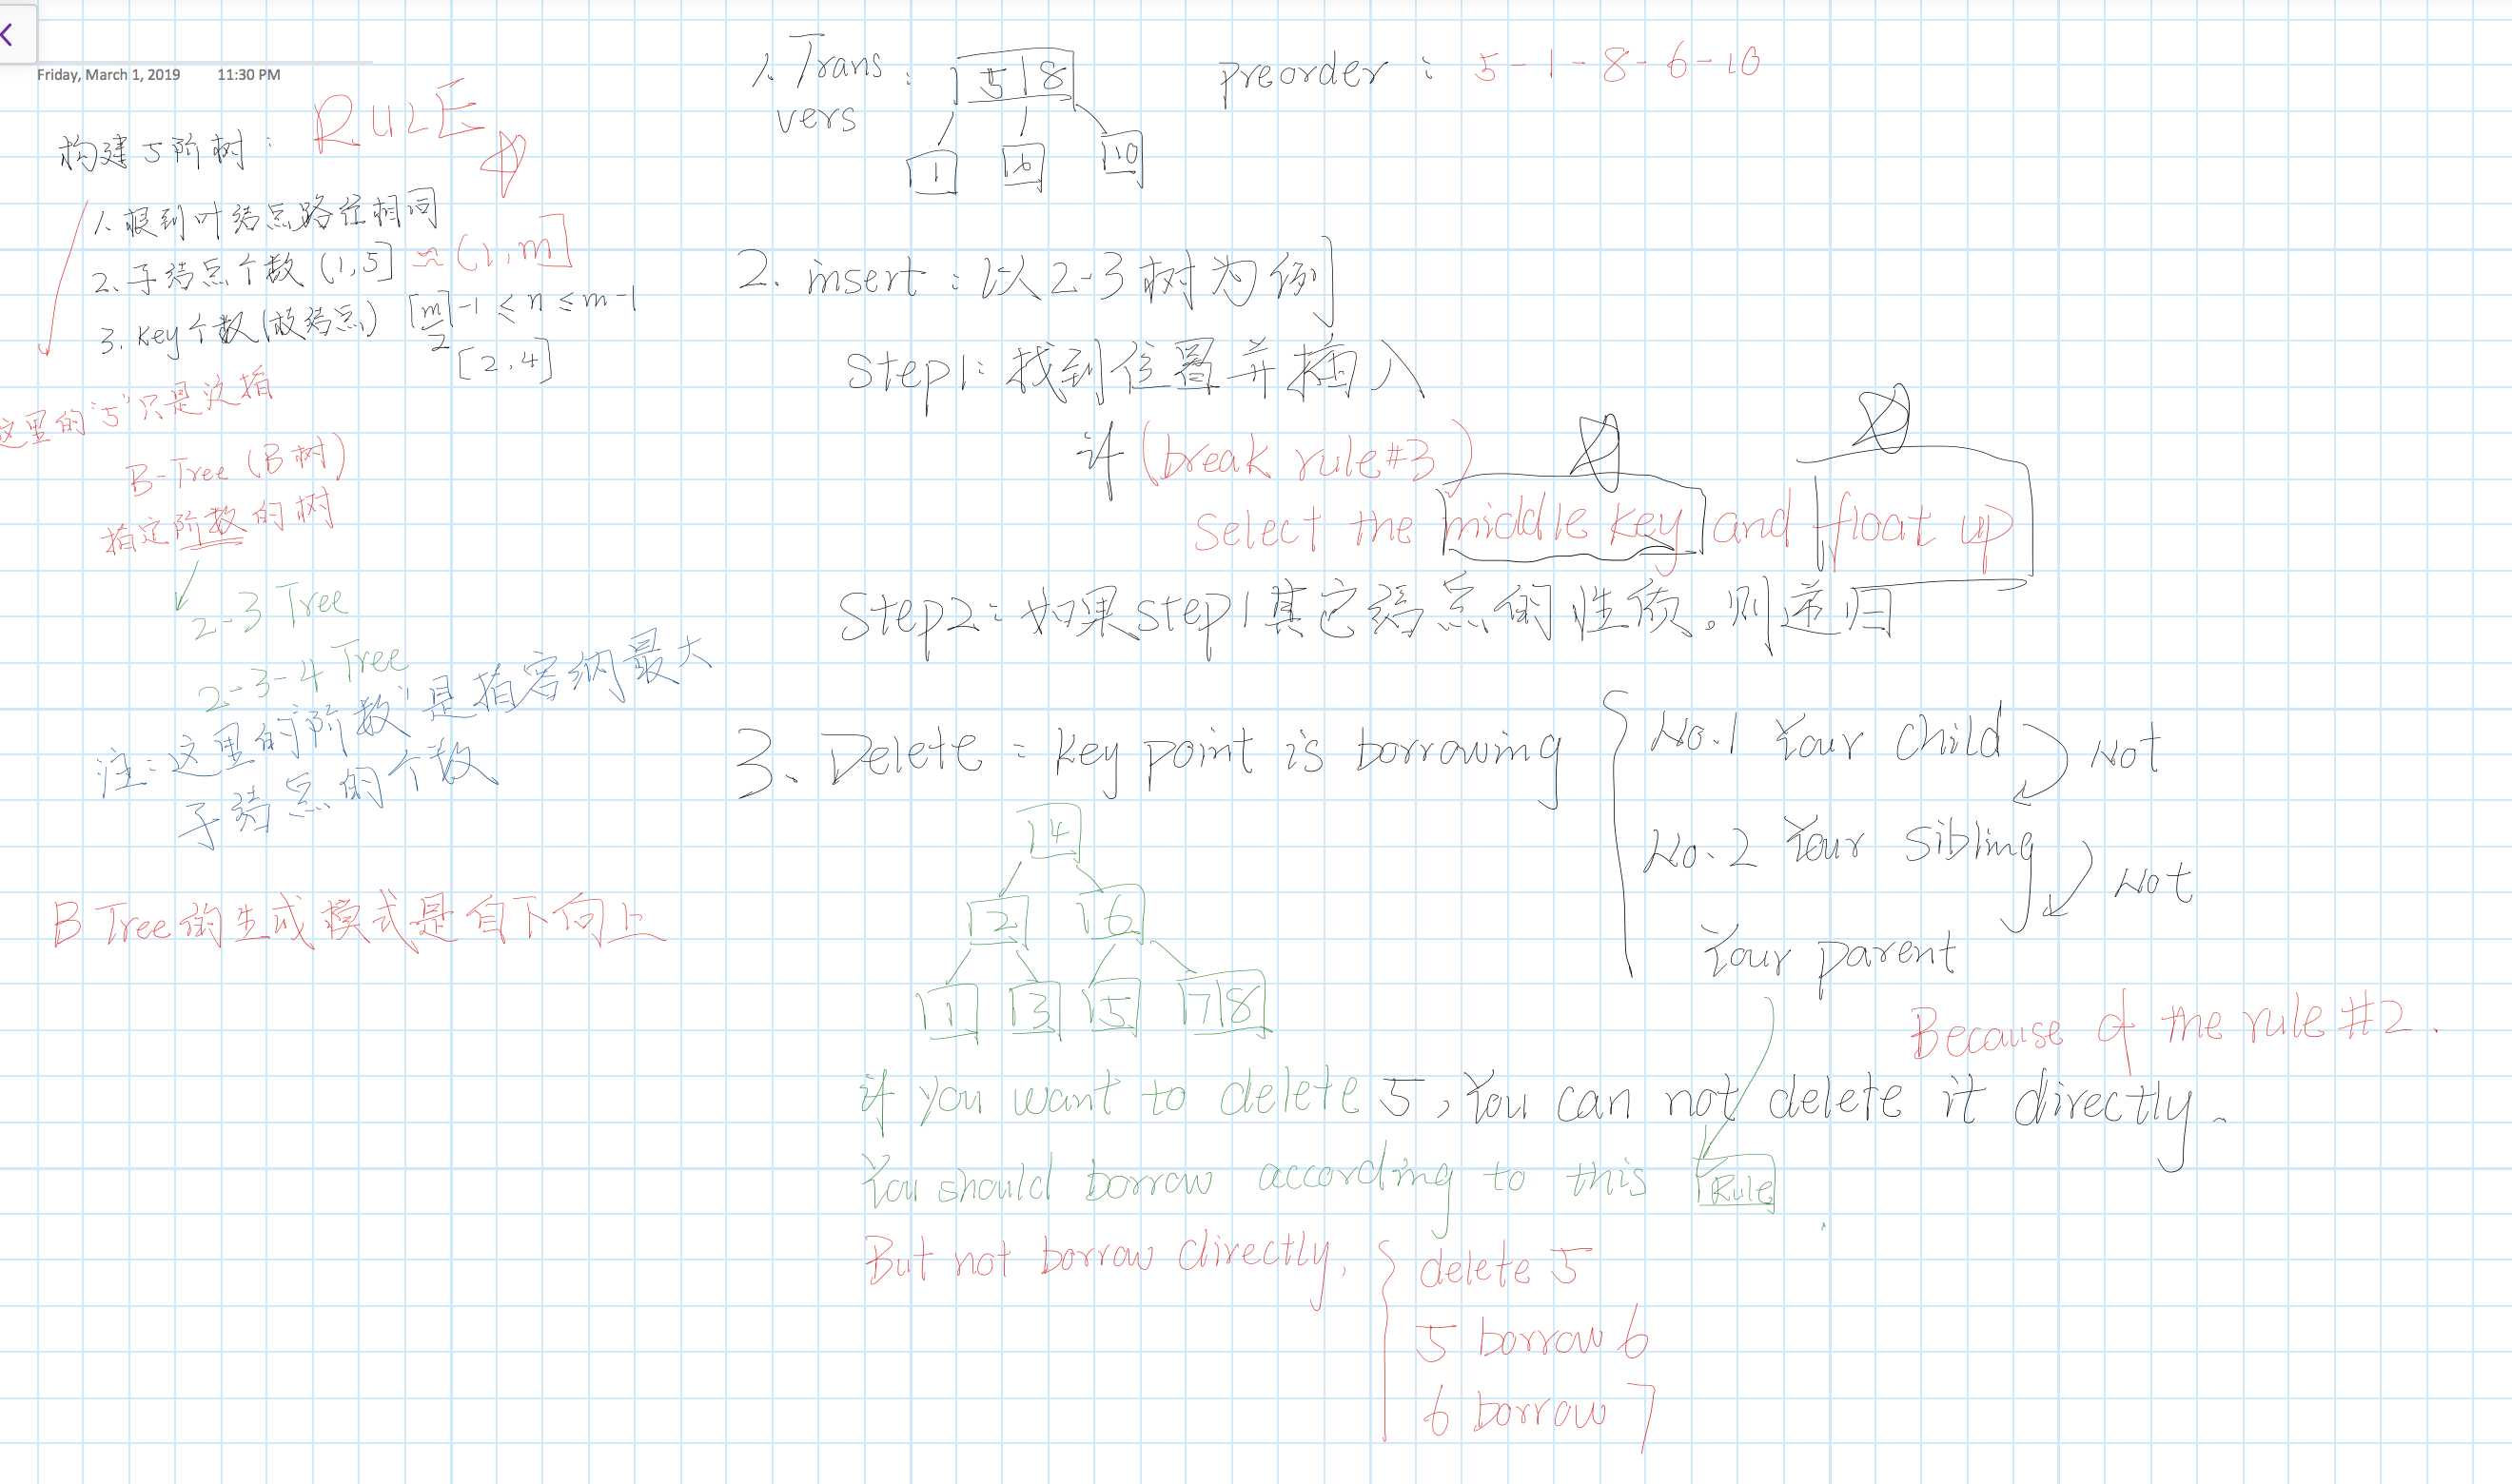 Friday, March 1, 2019 11:30 PM
构建5阶树: RULE
1. 根到叶结点路径相同
2. 子结点个数 (1,5] ≈ (1,m]
3. key个数(故结点) [m/2]-1 ≤ n ≤ m-1
[2,4]
这里的"5"只是说指
B-Tree (B树)
指定阶数的树
2-3 Tree
2-3-4 Tree
注:这里的"阶数"是指容纳最大
子结点的个数
B Tree的生成模式是自下向上
1. Trans
vers :
5 8
1 6 10
preorder : 5-1-8-6-10
2. insert : 以2-3树为例
Step1: 找到位置并插入
if (break rule#3)
select the middle key and float up
Step2: 如果step1其它结点的性质。则递归
3. Delete : key point is borrowing
No.1 Your child Not
No.2 Your sibling Not
Your parent
4
2 6
1 3 5 7 8
Because of the rule #2.
if you want to delete 5, You can not delete it directly.
You should borrow according to this Rule.
But not borrow directly,
delete 5
5 borrow 6
6 borrow 7